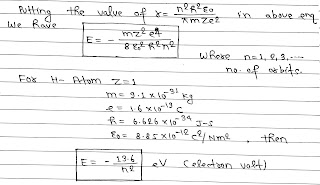 Putting the value of r = n²h²ε₀ / πmze² in above eqn
We have
E = - mz²e⁴ / 8ε₀²h²n²
Where n=1,2,3,----
no. of orbits.
For H- Atom Z=1
m = 9.1 × 10⁻³¹ kg
e = 1.6 × 10⁻¹⁹ C
h = 6.626 × 10⁻³⁴ J-s
ε₀ = 8.85 × 10⁻¹² c²/Nm² , then
E = - 13.6 / n² eV (electron volt)